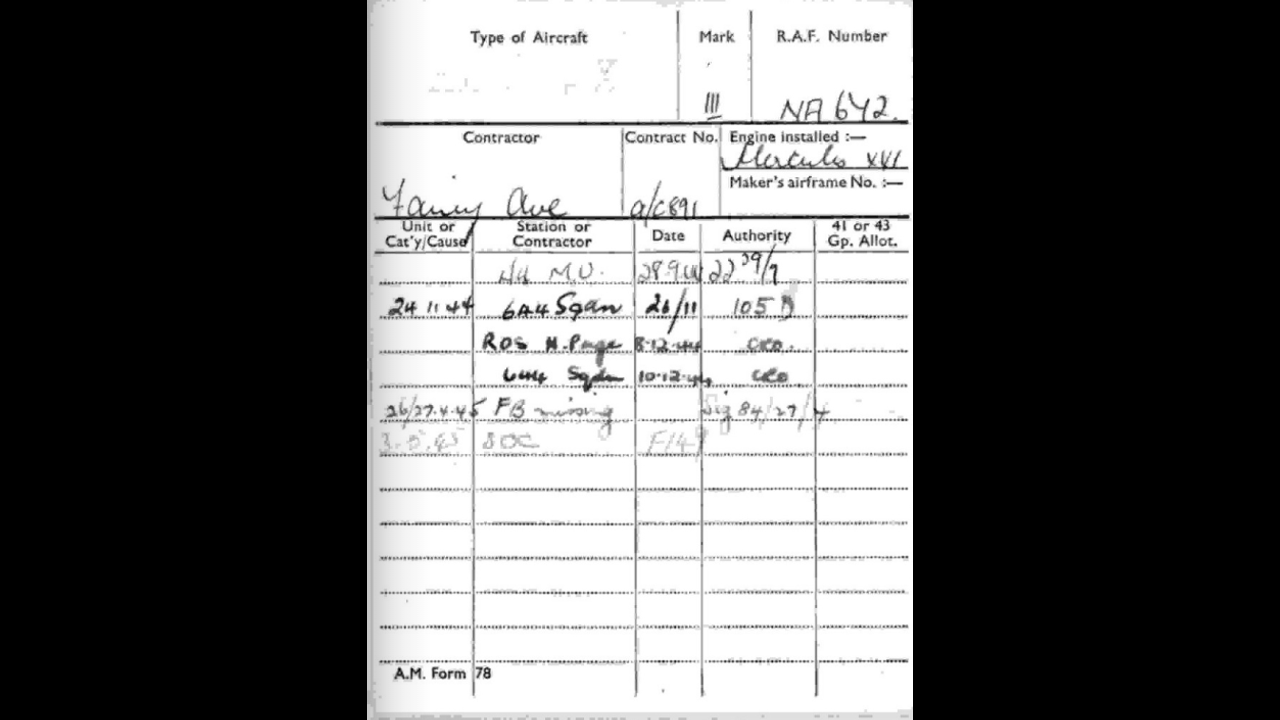 Type of Aircraft Mark R.A.F. Number
III NA 642.
Contractor Contract No. Engine installed :—
Hercules XVI
Maker's airframe No. :—
Fairey Ave a/c891
Unit or Cat'y/Cause Station or Contractor Date Authority 41 or 43 Gp. Allot.
44 M.U. 28.9.44 22 29/9
24 11 44 644 Sqdn 26/11 105
ROS H. Page 8.12.44 CRO.
644 Sqdn 10.12.44 CRO
26/27.4.45 FB missing Sig 84/27/4
3.5.45 SOC F/48
A.M. Form 78